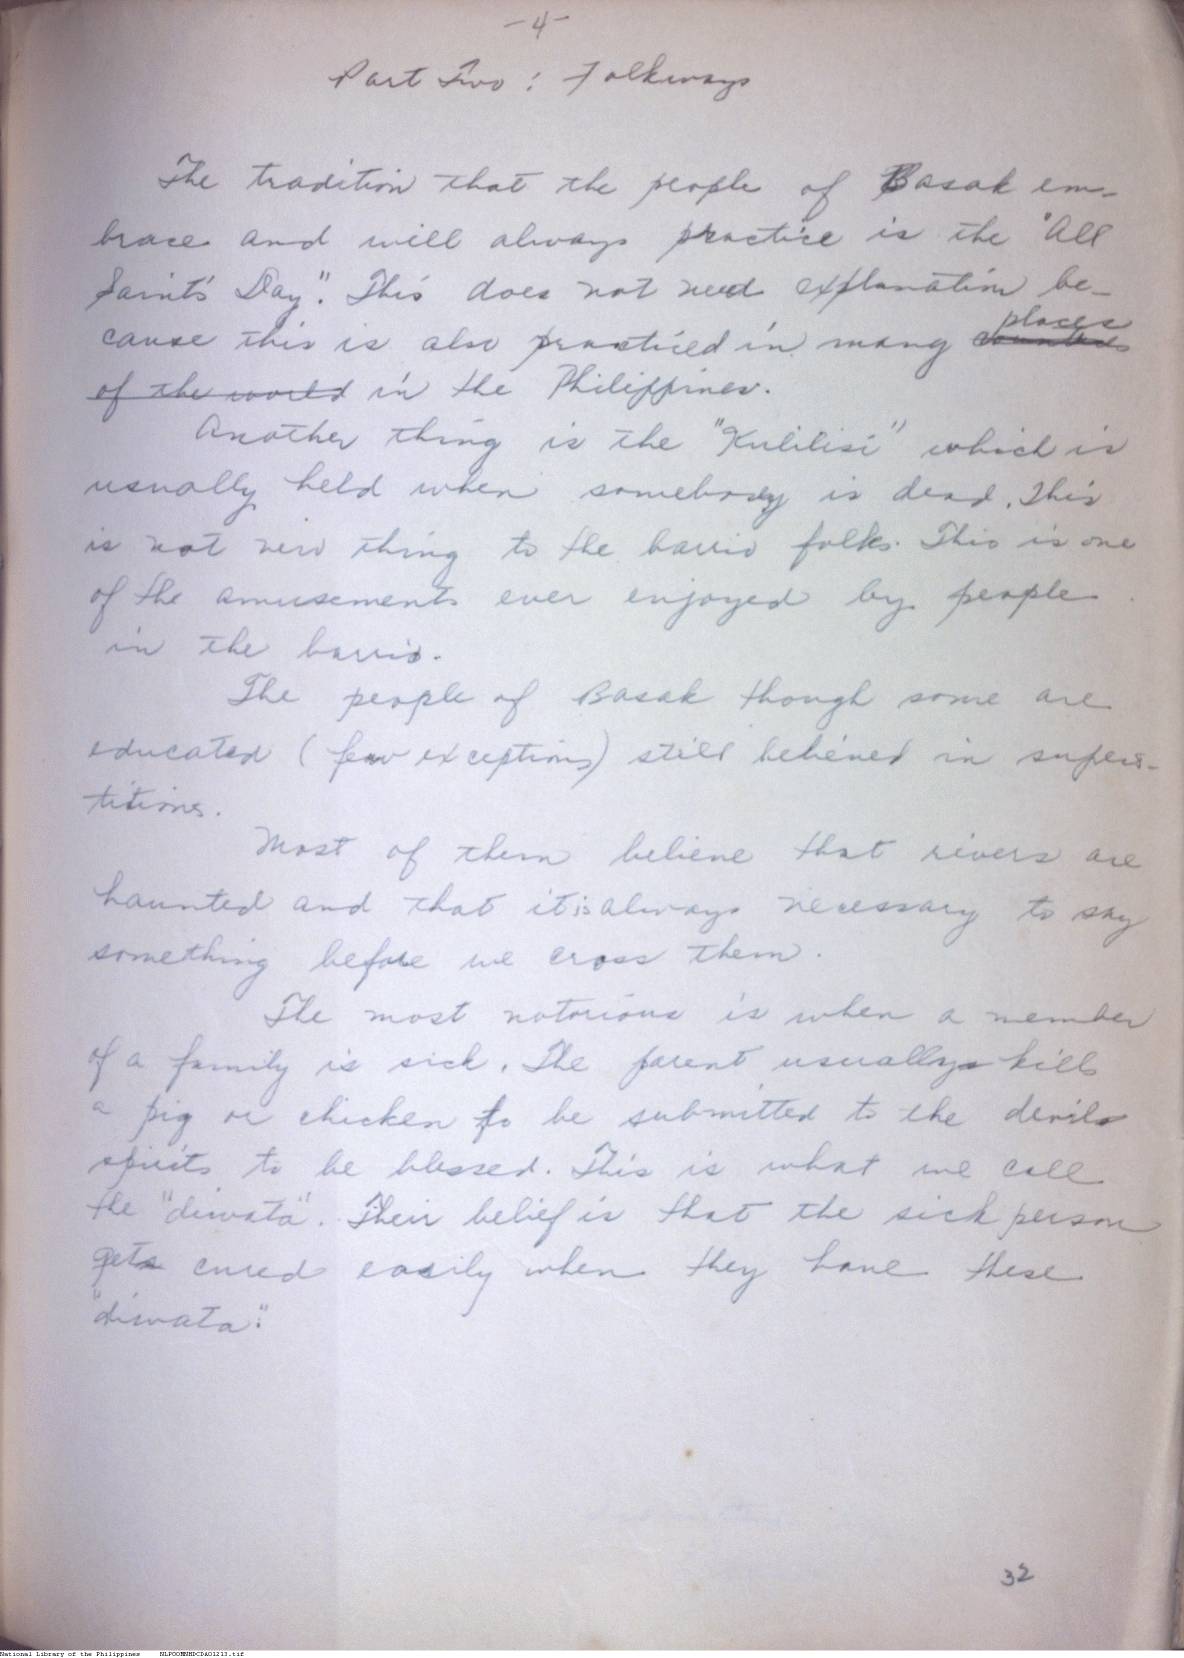 -4-
Part Two: Folkways
The tradition that the people of Basak em-
brace and will always practice is the "All
Saint's Day". This does not need explanation be-
places
cause this is also practiced in many countries
of the world in the Philippines.
Another thing is the "Kulilisi" which is
usually held when somebody is dead. This
is not new thing to the barrio folks. This is one
of the amusements ever enjoyed by people
in the barrio.
The people of Basak though some are
educated (few exceptions) still believed in supers-
titions.
Most of them believe that rivers are
haunted and that it is always necessary to say
something before we cross them.
The most notorious is when a member
of a family is sick. The parent usually kills
a pig or chicken to be submitted to the devils
spirits to be blessed. This is what we call
the "diwata". Their belief is that the sick person
gets cured easily when they have these
"diwata".
32
National Library of the Philippines NLPOOMNHDCDA01213.tif